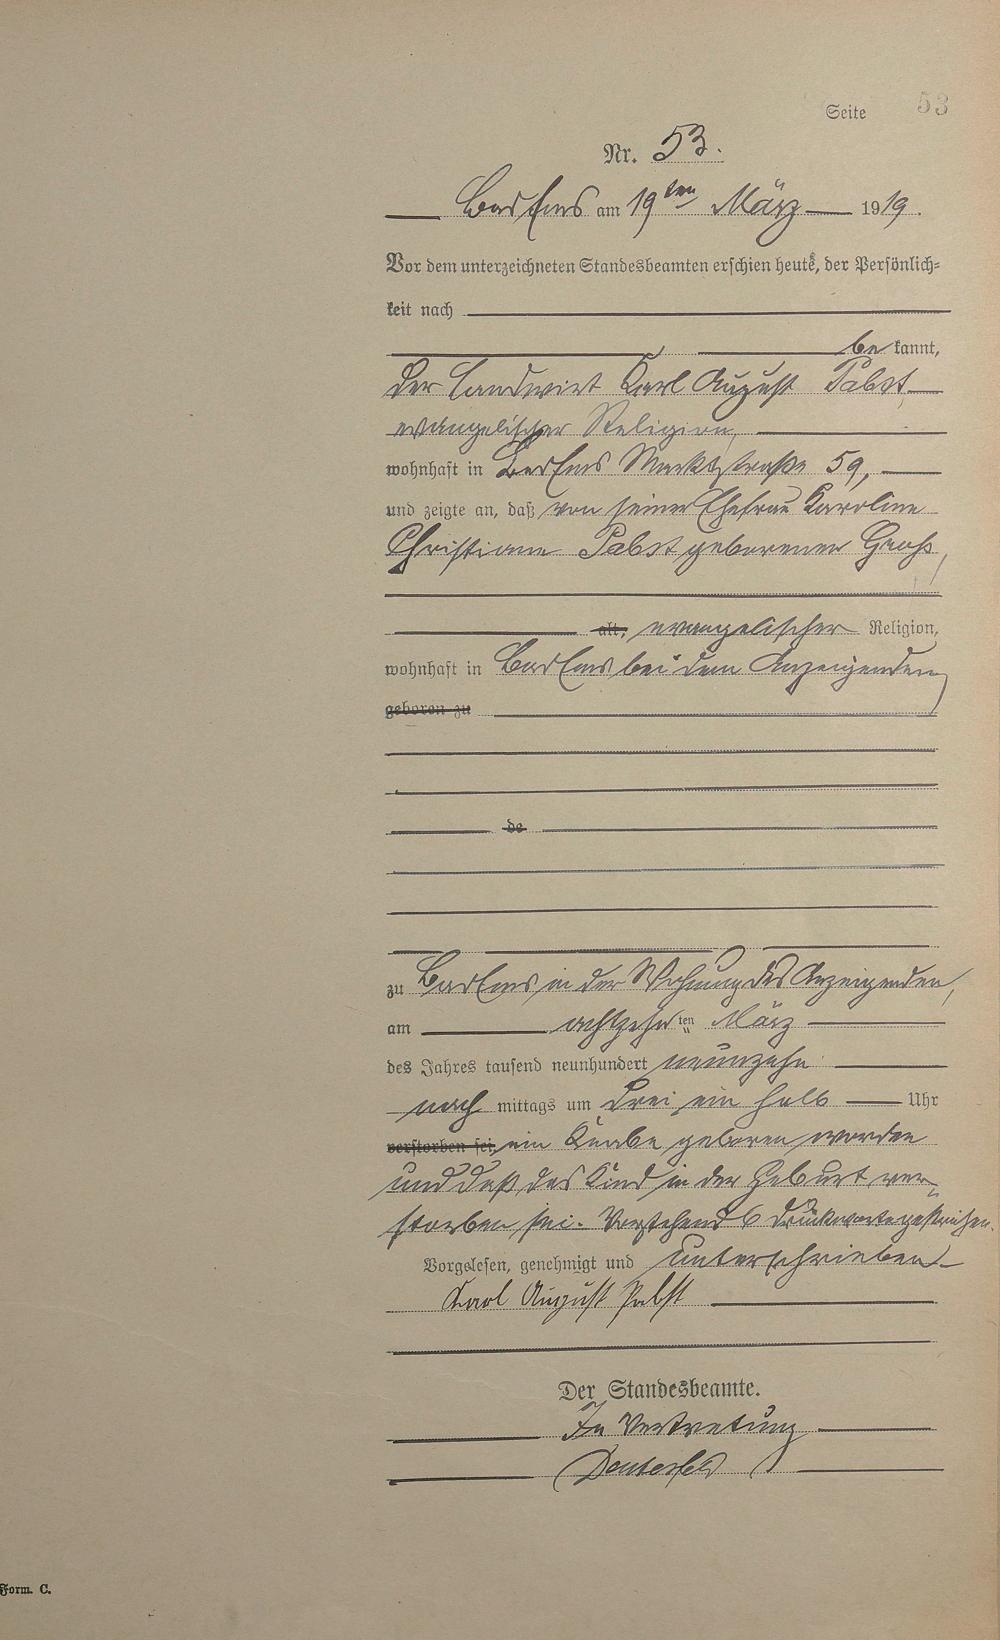 Seite 53
Nr. 53.
Bad Ems am 19ten März 1919.
Vor dem unterzeichneten Standesbeamten erschien heute, der Persönlich-
keit nach
be kannt,
der Landwirt Karl August Pabst
evangelischer Religion,
wohnhaft in Bad Ems Marktstraße 59,
und zeigte an, daß von seiner Ehefrau Karoline
Christiane Pabst geborenen Groß,
alt, evangelischer Religion,
wohnhaft in Bad Ems bei dem Anzeigenden,
geboren zu
de
zu Bad Ems in der Wohnung des Anzeigenden,
am achtzehnten März
des Jahres tausend neunhundert neunzehn
nach mittags um drei ein halb Uhr
verstorben sei, ein Knabe geboren worden
und daß das Kind in der Geburt ver-
storben sei. Vorstehend 6 Druckworte gestrichen.
Vorgelesen, genehmigt und unterschrieben
Karl August Pabst
Der Standesbeamte.
In Vertretung
Form. C.